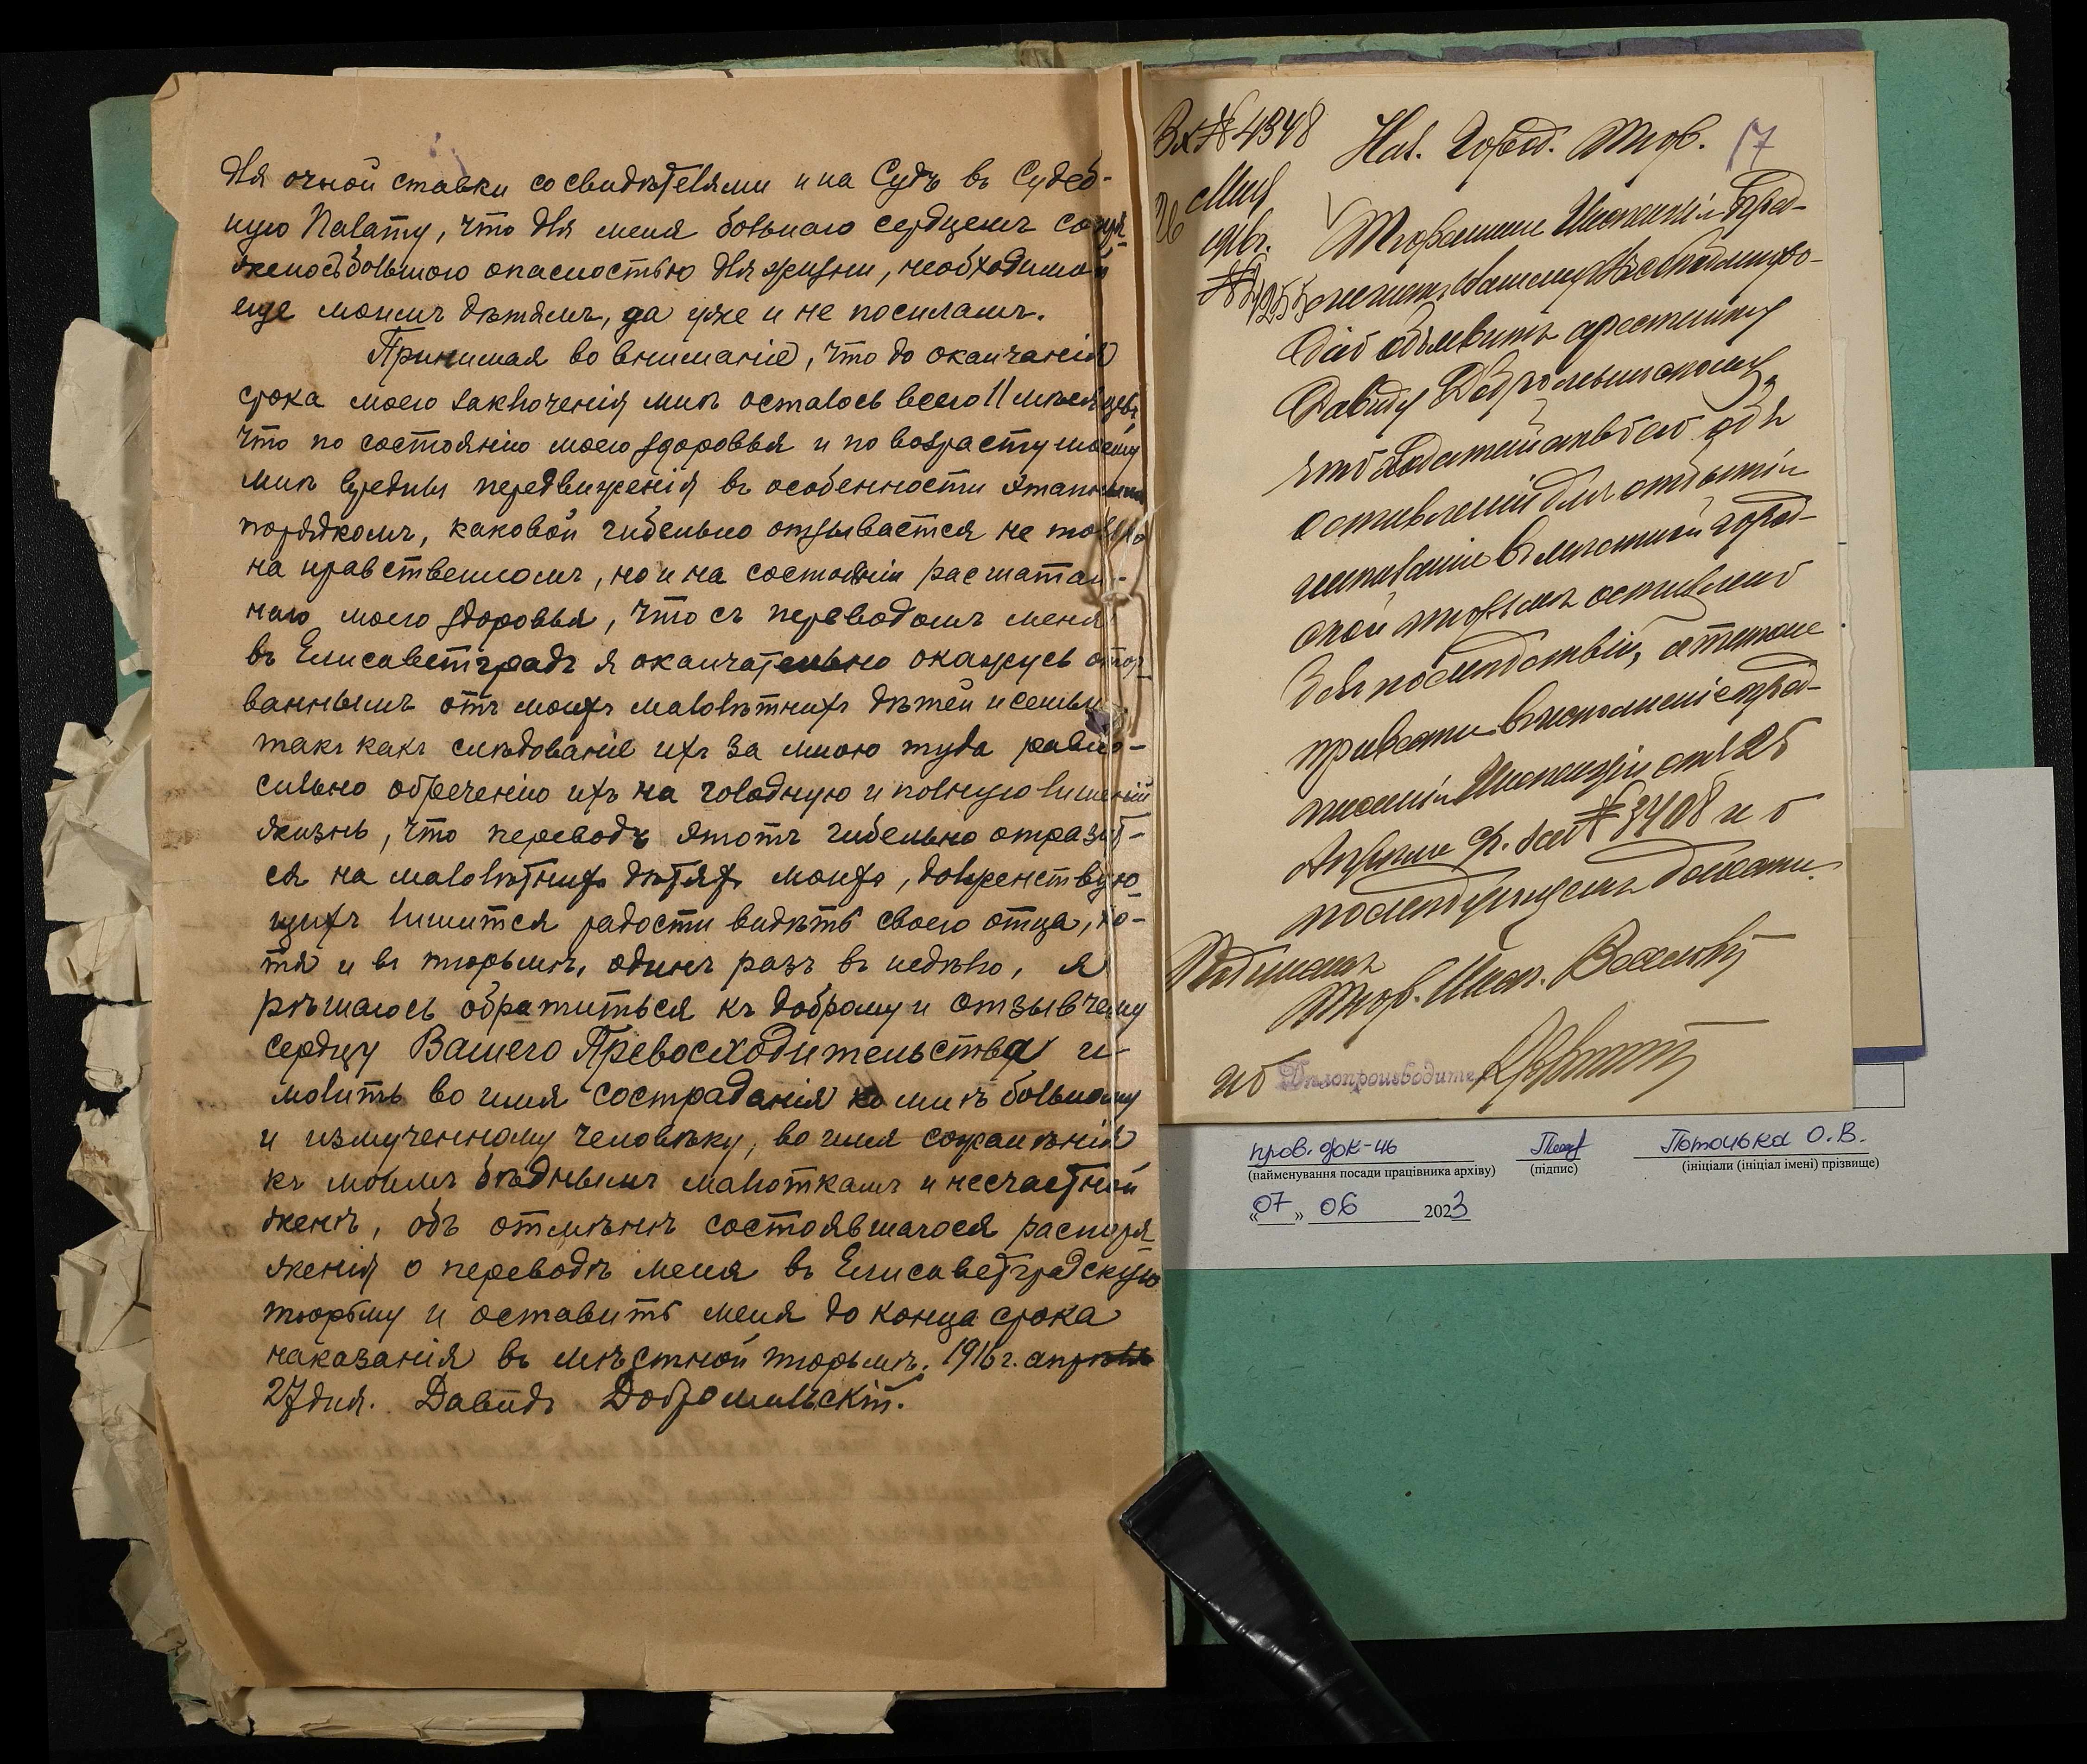 для очной ставки со свидѣтелями и на Судъ въ Судеб-
ную Палату, что для меня больного сердцемъ сопря-
жено съ большою опасностью для жизни, необходимой
еще моимъ дѣтямъ, да уже и не посиламъ.
Принимая во вниманіе, что до окончанія
срока моего заключенія мнѣ осталось всего 11 мѣсяцевъ
что по состоянію моего здоровья и по возрасту моему
мнѣ вредны передвиженія въ особенности этапнымъ
порядкомъ, каковой гибельно отзывается не только
на нравственномъ, но и на состояніи расшатан-
наго моего здоровья, что съ переводомъ меня
въ Елисаветградъ я окончательно окажусь отор-
ваннымъ отъ моихъ малолѣтнихъ дѣтей и семьи
такъ какъ слѣдованіе ихъ за мною туда равно-
сильно обреченію ихъ на голодную и полную лишеній
жизнь, что переводъ этотъ гибельно отразит-
ся на малолѣтнихъ дѣтяхъ моихъ, долженствую-
щихъ лишится радости видѣть своего отца, хо-
тя и въ тюрьмѣ, одинъ разъ въ недѣлю, я
рѣшаюсь обратиться къ доброму и отзывчему
сердцу Вашего Превосходительства и
молить во имя состраданія ко мнѣ больному
и измученному человѣку, во имя сожалѣнія
къ моимъ бѣднымъ малюткамъ и несчастной
женѣ, объ отмѣнѣ состоявшагося распоря-
женія о переводѣ меня въ Елисаветградскую
тюрьму и оставить меня до конца срока
наказанія въ мѣстной тюрьмѣ. 1916 г. апрѣля
27 дня. Давидъ Добромильскій.
Вх № 4348
26 Мая
1916 г.
№ 4255
Нач. Город. Тюр. 17
Тюремная Инспекція пред-
лагаетъ Вашему Высокоблагоро-
дію объявить арестанту
Давиду Добромильскому,
что ходатайство его объ
оставленіи для отбытія
наказанія въ мѣстной город-
ской тюрьмѣ оставлено
безъ послѣдствій, а также
привести въ исполненіе пред-
писаніе Инспекціи отъ 25
Апрѣля с. г. за № 3408 и о
послѣдующемъ донести.
Подписалъ
Тюр. Инсп.
Дѣлопроизводитель
пров. док-ів
(найменування посади працівника архіву)
(підпис)
Потоцька О.В.
(ініціали (ініціал імені) прізвище)
«07» 06 2023